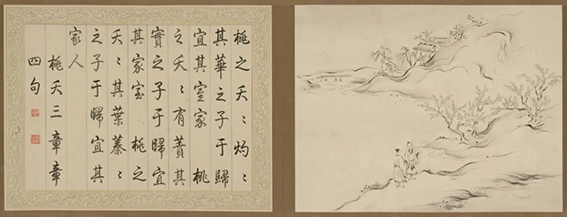 桃之夭〻灼〻
其華之子于歸
宜其室家 桃
之夭〻有蕡其
實之子于歸宜
其家室 桃之
夭〻其葉蓁〻
之子于歸宜其
家人
桃夭三章章
四句